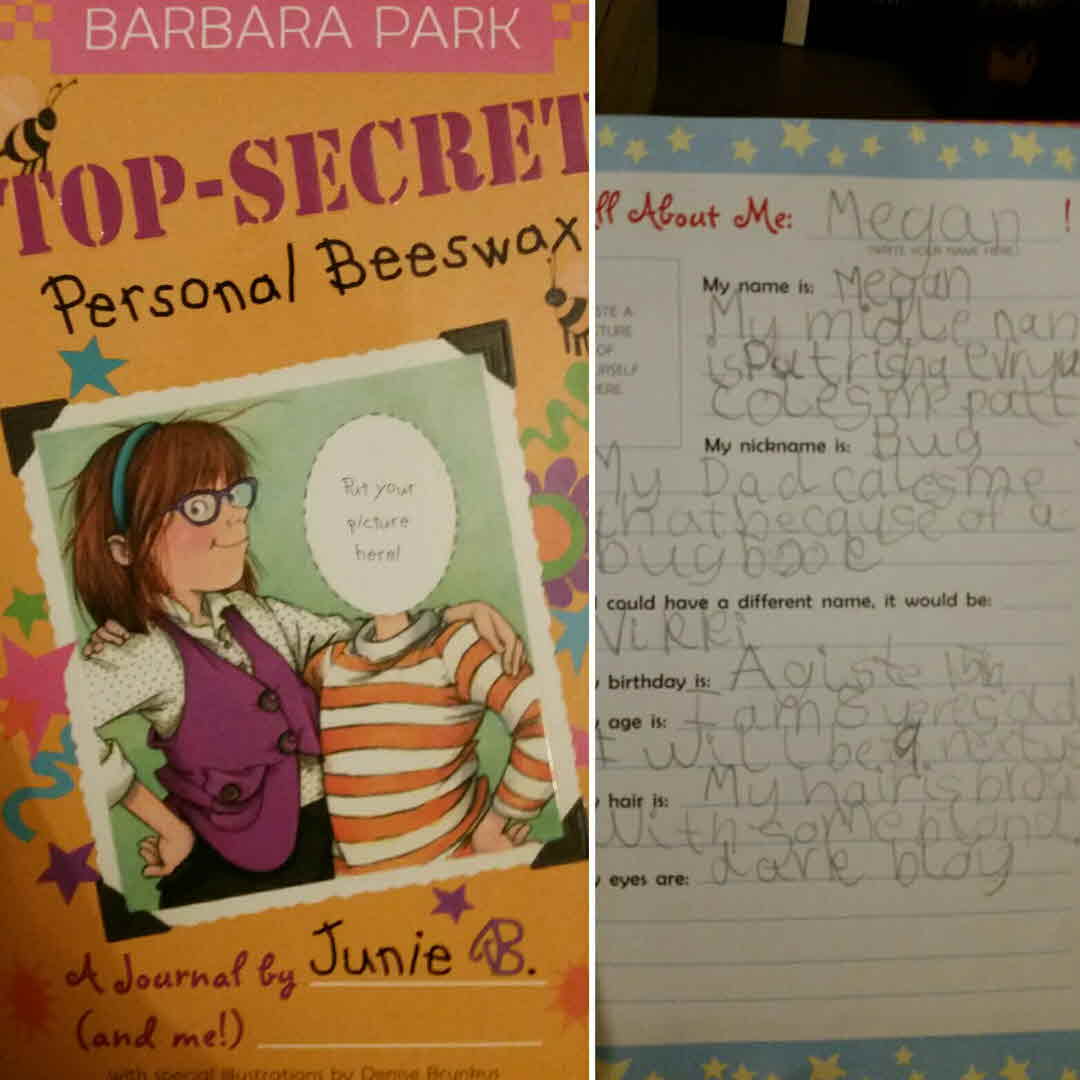 BARBARA PARK
TOP-SECRET
Personal Beeswax
Put your
picture
here!
A Journal by Junie B.
(and me!)
with special illustrations by Denise Brunkus
ll About Me: Megan !
(WRITE YOUR NAME HERE)
STE A
CTURE
OF
URSELF
ERE
My name is: Megan
My midle nam
is Patrisha
coles me patt
My nickname is: Bug
My Dad cales me
that because of a
bug book
could have a different name, it would be:
Vikki
birthday is: Agiste 15th
age is: I am 8
I will be 9 next
hair is: My hair is
With some blond
eyes are: dark